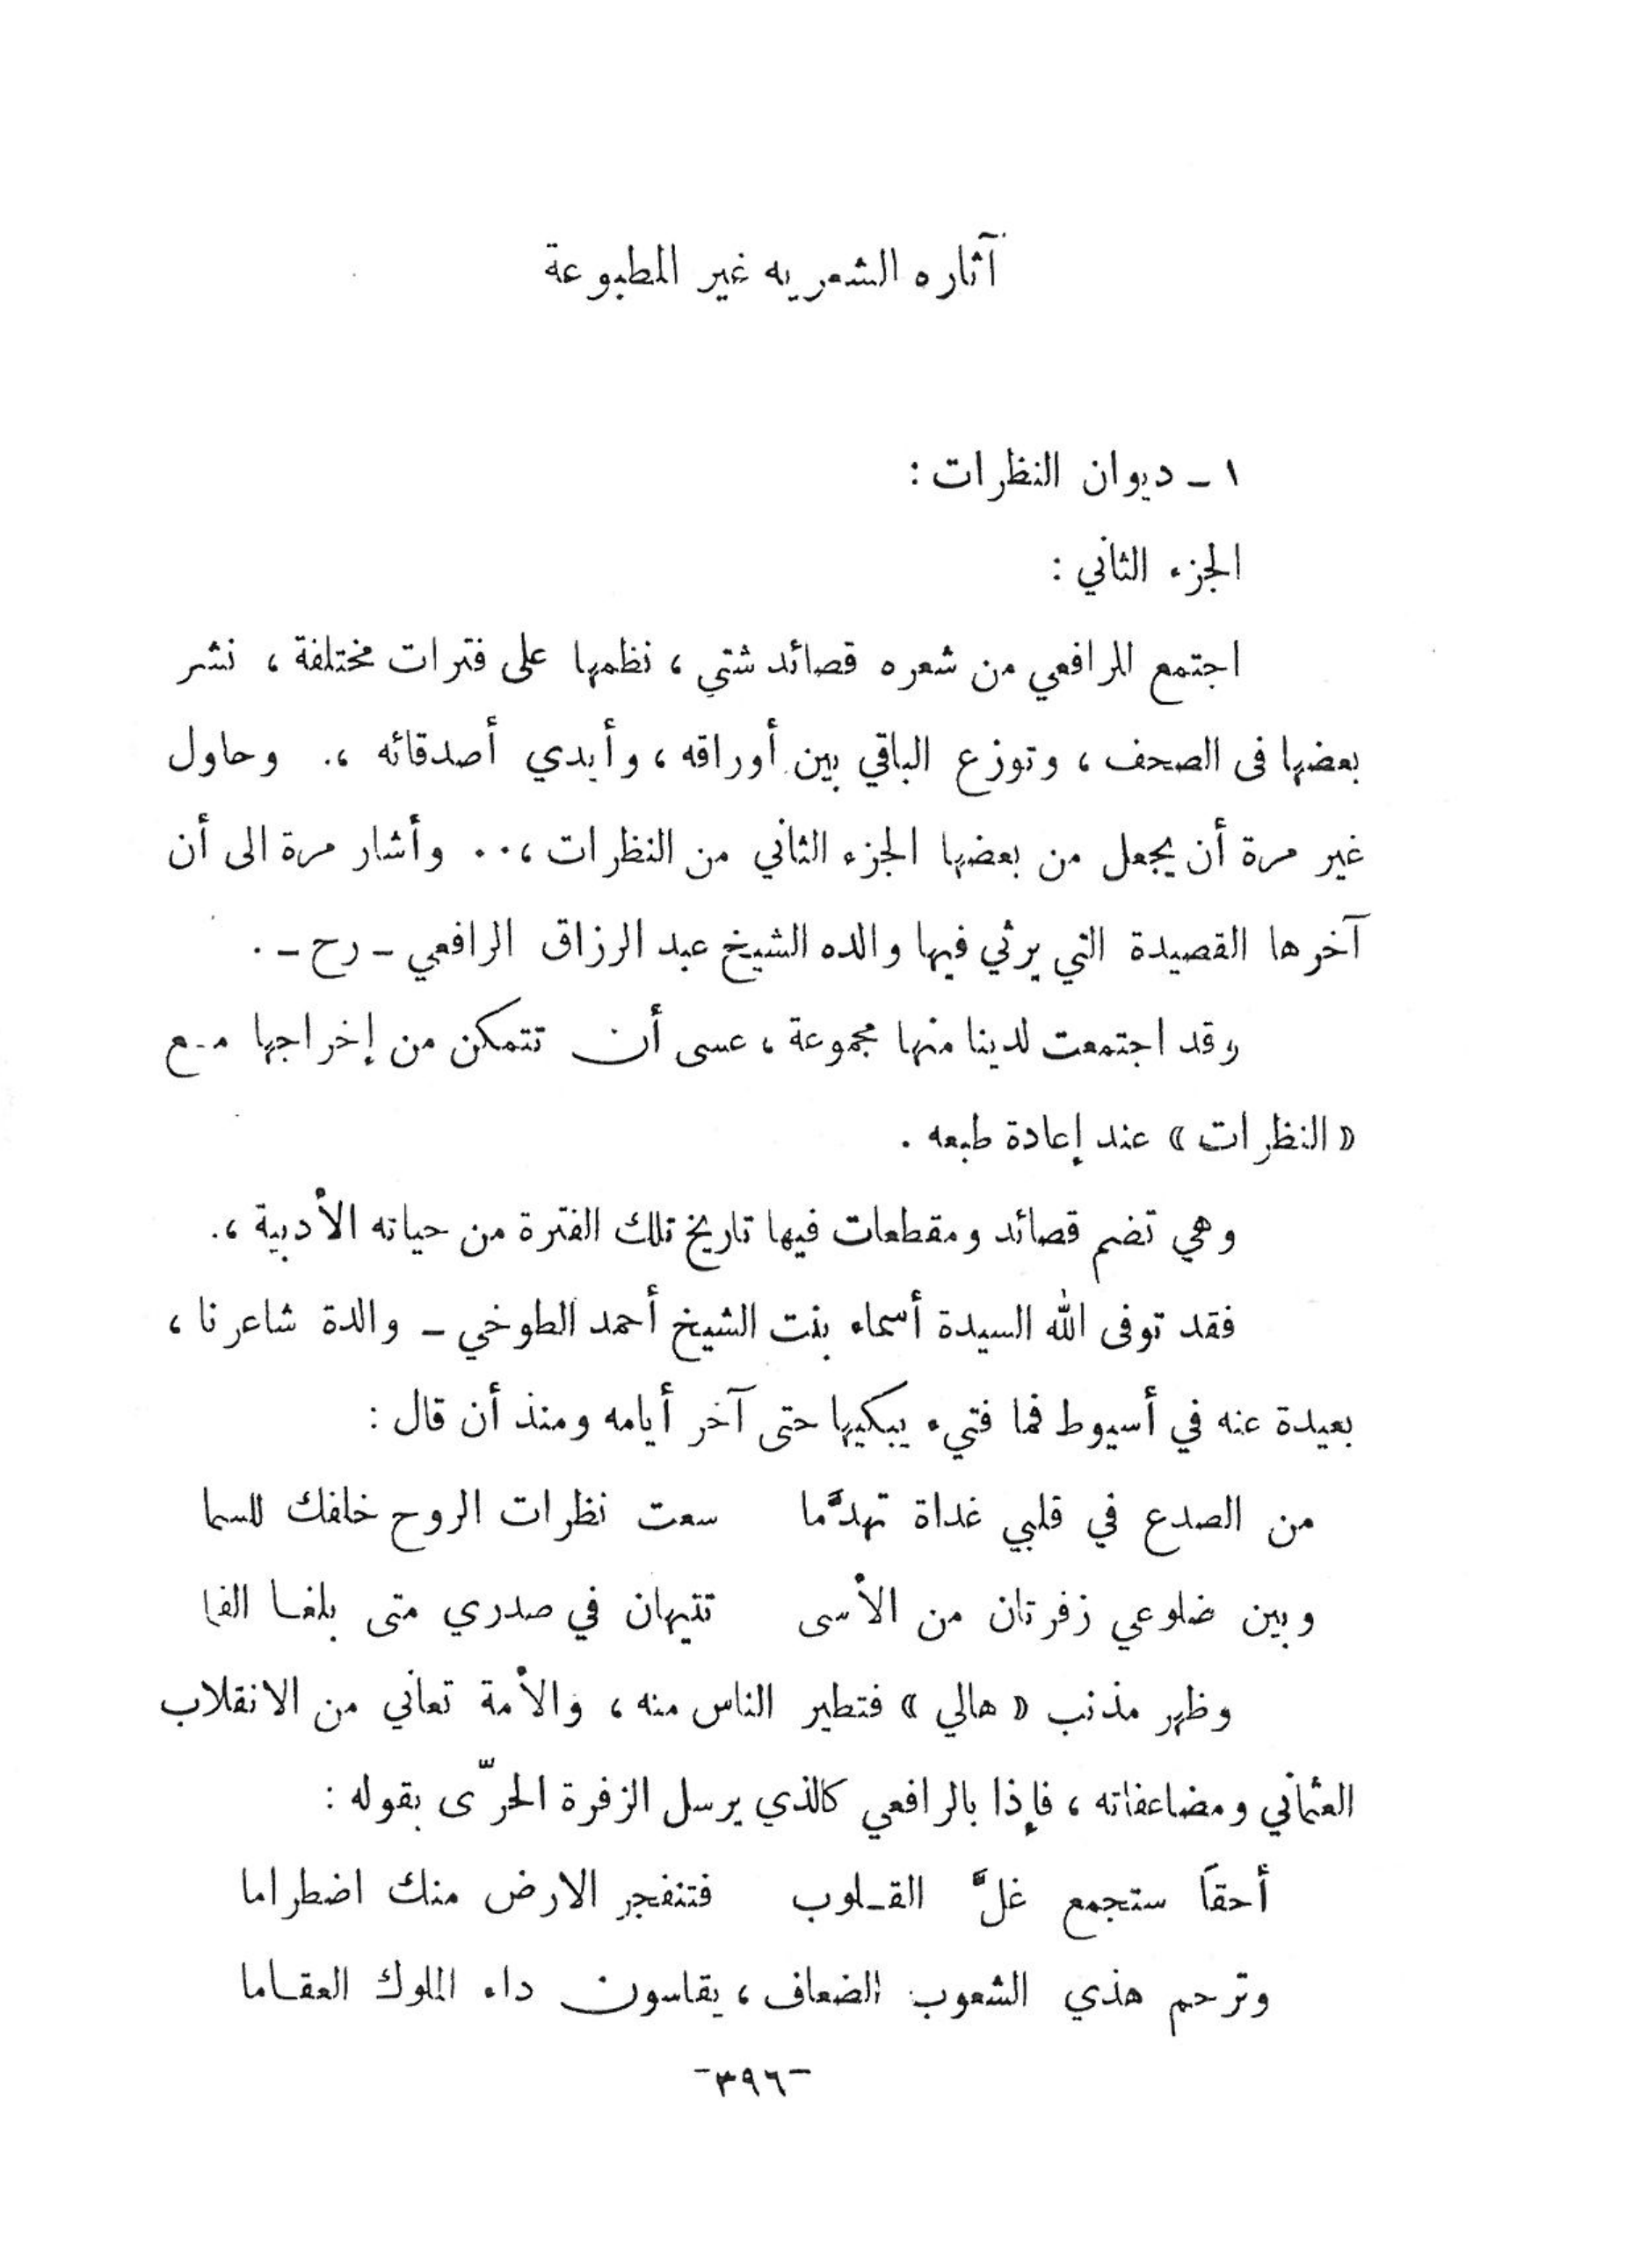 آثاره الشعريه غير المطبوعة
١ – ديوان النظرات :
الجزء الثاني :
اجتمع للرافعي من شعره قصائد شتي ، نظمها على فترات مختلفة ، نشر
بعضها فى الصحف ، وتوزع الباقي بين أوراقه ، وأيدي أصدقائه ،. وحاول
غير مرة أن يجعل من بعضها الجزء الثاني من النظرات ،.. وأشار مرة الى أن
آخرها القصيدة التي يرثي فيها والده الشيخ عبد الرزاق الرافعي – رح – .
وقد اجتمعت لدينا منها مجموعة ، عسى أن تتمكن من إخراجها مـع
« النظرات » عند إعادة طبعه .
وهي تضم قصائد ومقطعات فيها تاريخ تلك الفترة من حياته الأدبية ،.
فقد توفى الله السيدة أسماء بنت الشيخ أحمد الطوخي – والدة شاعرنا ،
بعيدة عنه في أسيوط فما فتيء يبكيها حتى آخر أيامه ومنذ أن قال :
من الصدع في قلبي غداة تهدَّما سعت نظرات الروح خلفك للسما
وبين ضلوعي زفرتان من الأسى تتيهان في صدري متى بلغـا الفما
وظهر مذنب « هالي » فتطير الناس منه ، والأمة تعاني من الانقلاب
العثماني ومضاعفاته ، فإذا بالرافعي كالذي يرسل الزفرة الحرّى بقوله :
أحقاً ستجمع غلَّ القـلوب فتنفجر الارض منك اضطراما
وترحم هذي الشعوب الضعاف ، يقاسون داء الملوك العقـاما
-٣٩٦-